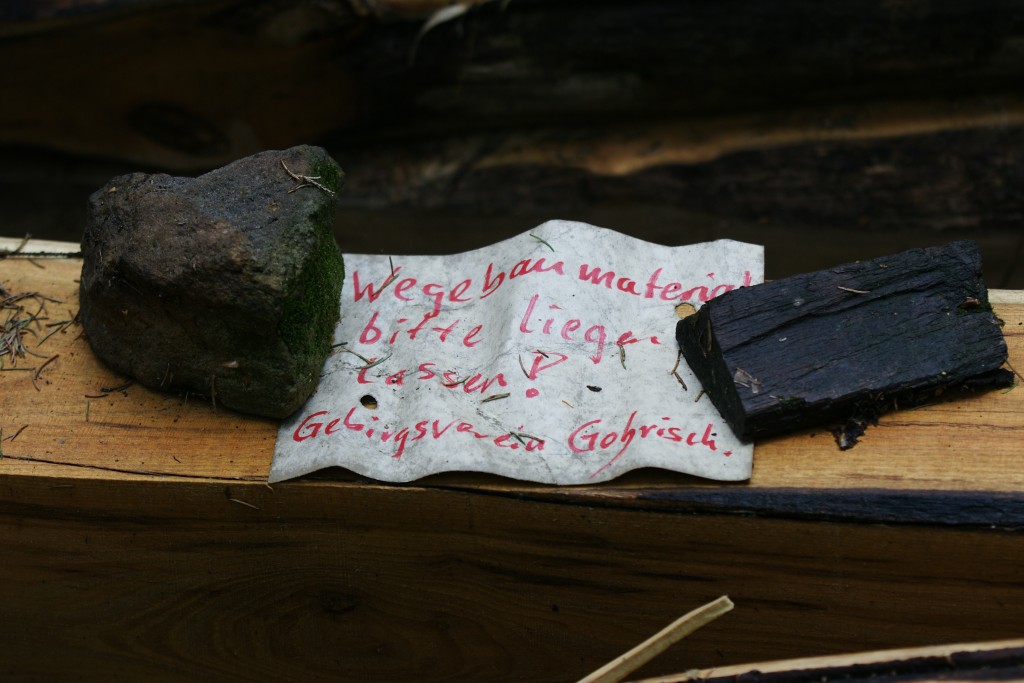 Wegebaumaterial
bitte liegen
lassen!
Gebirgsverein Gohrisch.